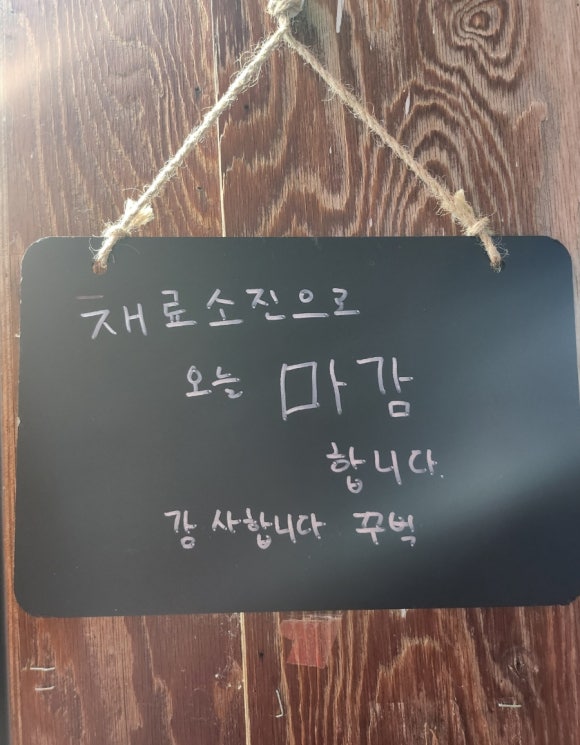 재료소진으로
오늘 마감
합니다.
감사합니다 꾸벅